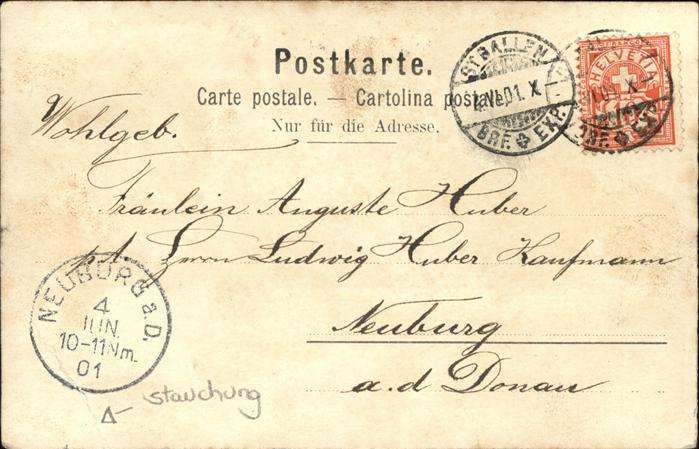 Postkarte.
Carte postale. — Cartolina postale.
Nur für die Adresse.
ST. GALLEN
4.VI.01.X
BRF. EXP.
HELVETIA
Wohlgeb.
Fräulein Auguste Huber
p.A. Herrn Ludwig Huber Kaufmann
Neuburg
a.d Donau
NEUBURG a.D.
4
JUN.
10-11 Nm.
01
Stauchung